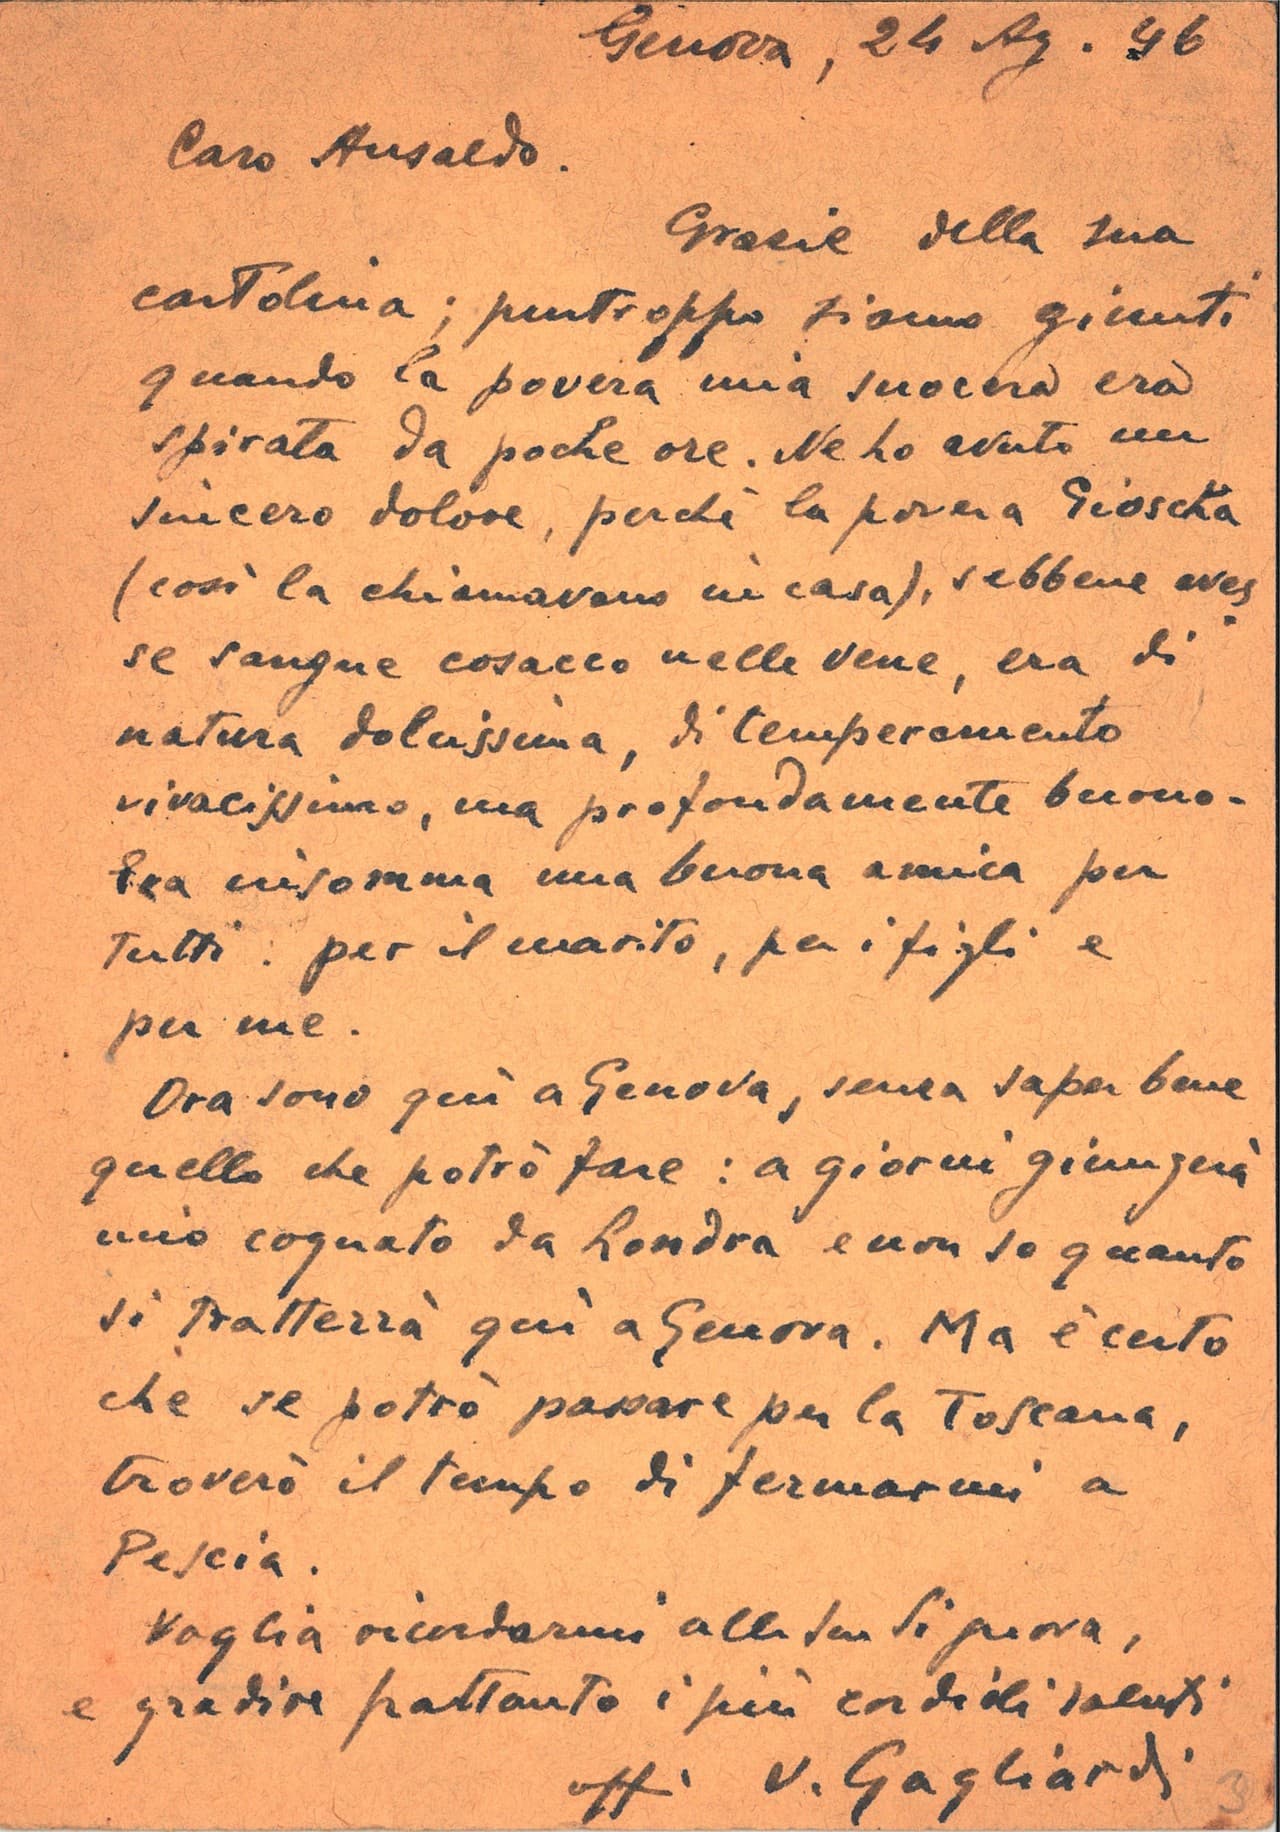 Genova, 24 Ag. 46
Caro Ansaldo.
Grazie della sua
cartolina; purtroppo siamo giunti
quando la povera mia suocera era
spirata da poche ore. Ne ho avuto un
sincero dolore, perchè la povera
(così la chiamavano in casa), sebbene aves
se sangue cosacco nelle vene, era di
natura dolcissima, di temperamento
vivacissimo, ma profondamente buono.
Era insomma una buona amica per
tutti: per il marito, per i figli e
per me.
Ora sono quì a Genova, senza saper bene
quello che potrò fare: a giorni giungerà
mio cognato da Londra e non so quanto
si tratterrà quì a Genova. Ma è certo
che se potrò passare per la Toscana,
troverò il tempo di fermarmi a
Pescia.
Voglia ricordarmi alla sua Signora,
e gradire frattanto i più cordiali saluti
aff. V. Gagliardi
3